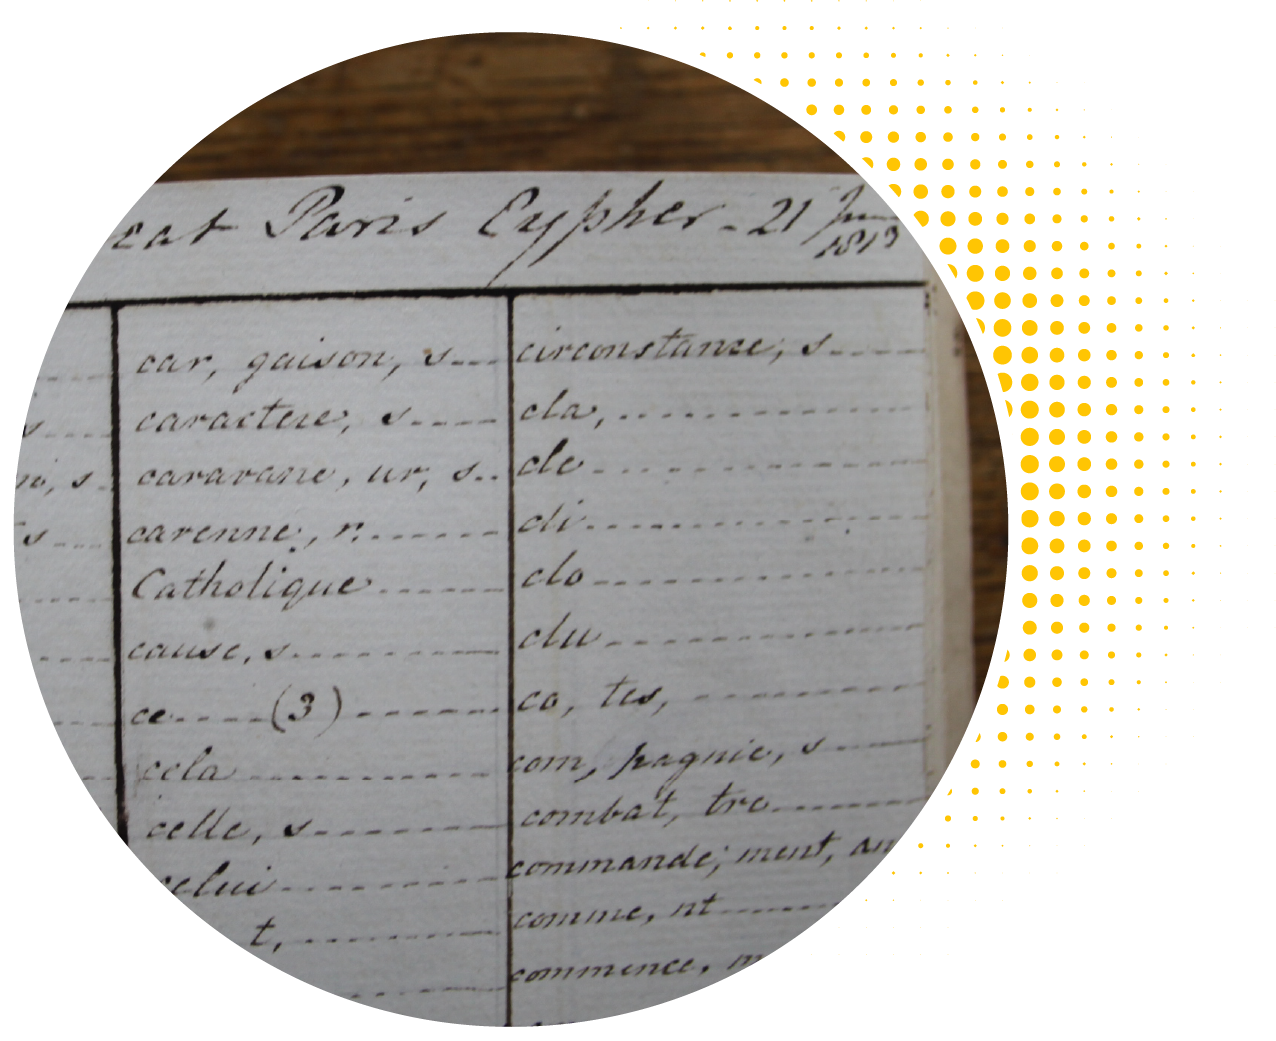 eat Paris Cypher - 21 June
1813
car, gaison, s
caractere, s
caravane, ur, s
carenne, r.
Catholique
cause, s
ce (3)
cela
celle, s
celui
t,
circonstance, s
cla,
cle
cli
clo
clu
co, tes,
com, pagnie, s
combat, tre
commande, ment, an
comme, nt
commence, m